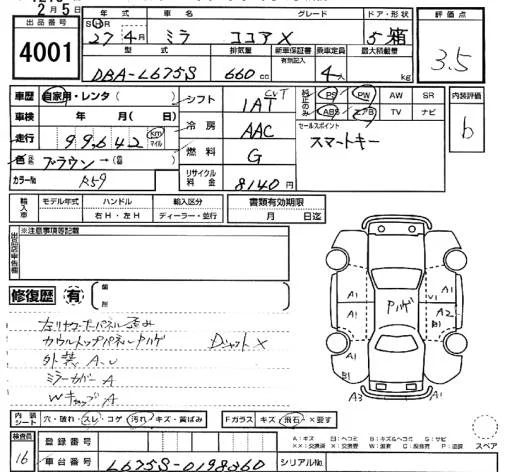 2月5日
出品番号
4001
年式 車名 グレード ドア・形状
S H R
27年4月 ミラ ココアX 5 箱
型式 排気量 新車保証書 乗車定員 最大積載量
有無記入
DBA-L675S 660cc 4人 kg
評価点
3.5
車歴 自家用・レンタ( )
車検 年 月( 日)
走行 99,642 km マイル
色 ブラウン→( )
カラーNo R59
シフト IAT CVT
冷房 AAC
燃料 G
リサイクル料金 8140円
純正のみ
PS PW AW SR
ABS エアB TV ナビ
セールスポイント
スマートキー
内装評価
b
輸入車
モデル年式 ハンドル 輸入区分
右H・左H ディーラー・並行
書類有効期限
月 日迄
出品店申告欄
※注意事項等記載
修復歴 有
左リヤコーナーパネル歪み
カウルトップパネルPハゲ Dシャフト X
外装 A、U
ミラーカバーA
WキャップA
A1
A1
A1
B1
A3
Pハゲ
V1
A1
A2
B1
A1
内装シート 穴・破れ・スレ・コゲ 汚れ キズ・黄ばみ
Fガラス キズ・飛石・X要す
A:キズ E:ヘコミ B:キズ&ヘコミ S:サビ
XX:交換済 X:交換要 W:波 C:腐食 P:塗装
スペア
検査員
16
登録番号
車台番号 L675S-0198360
シリアルNo.